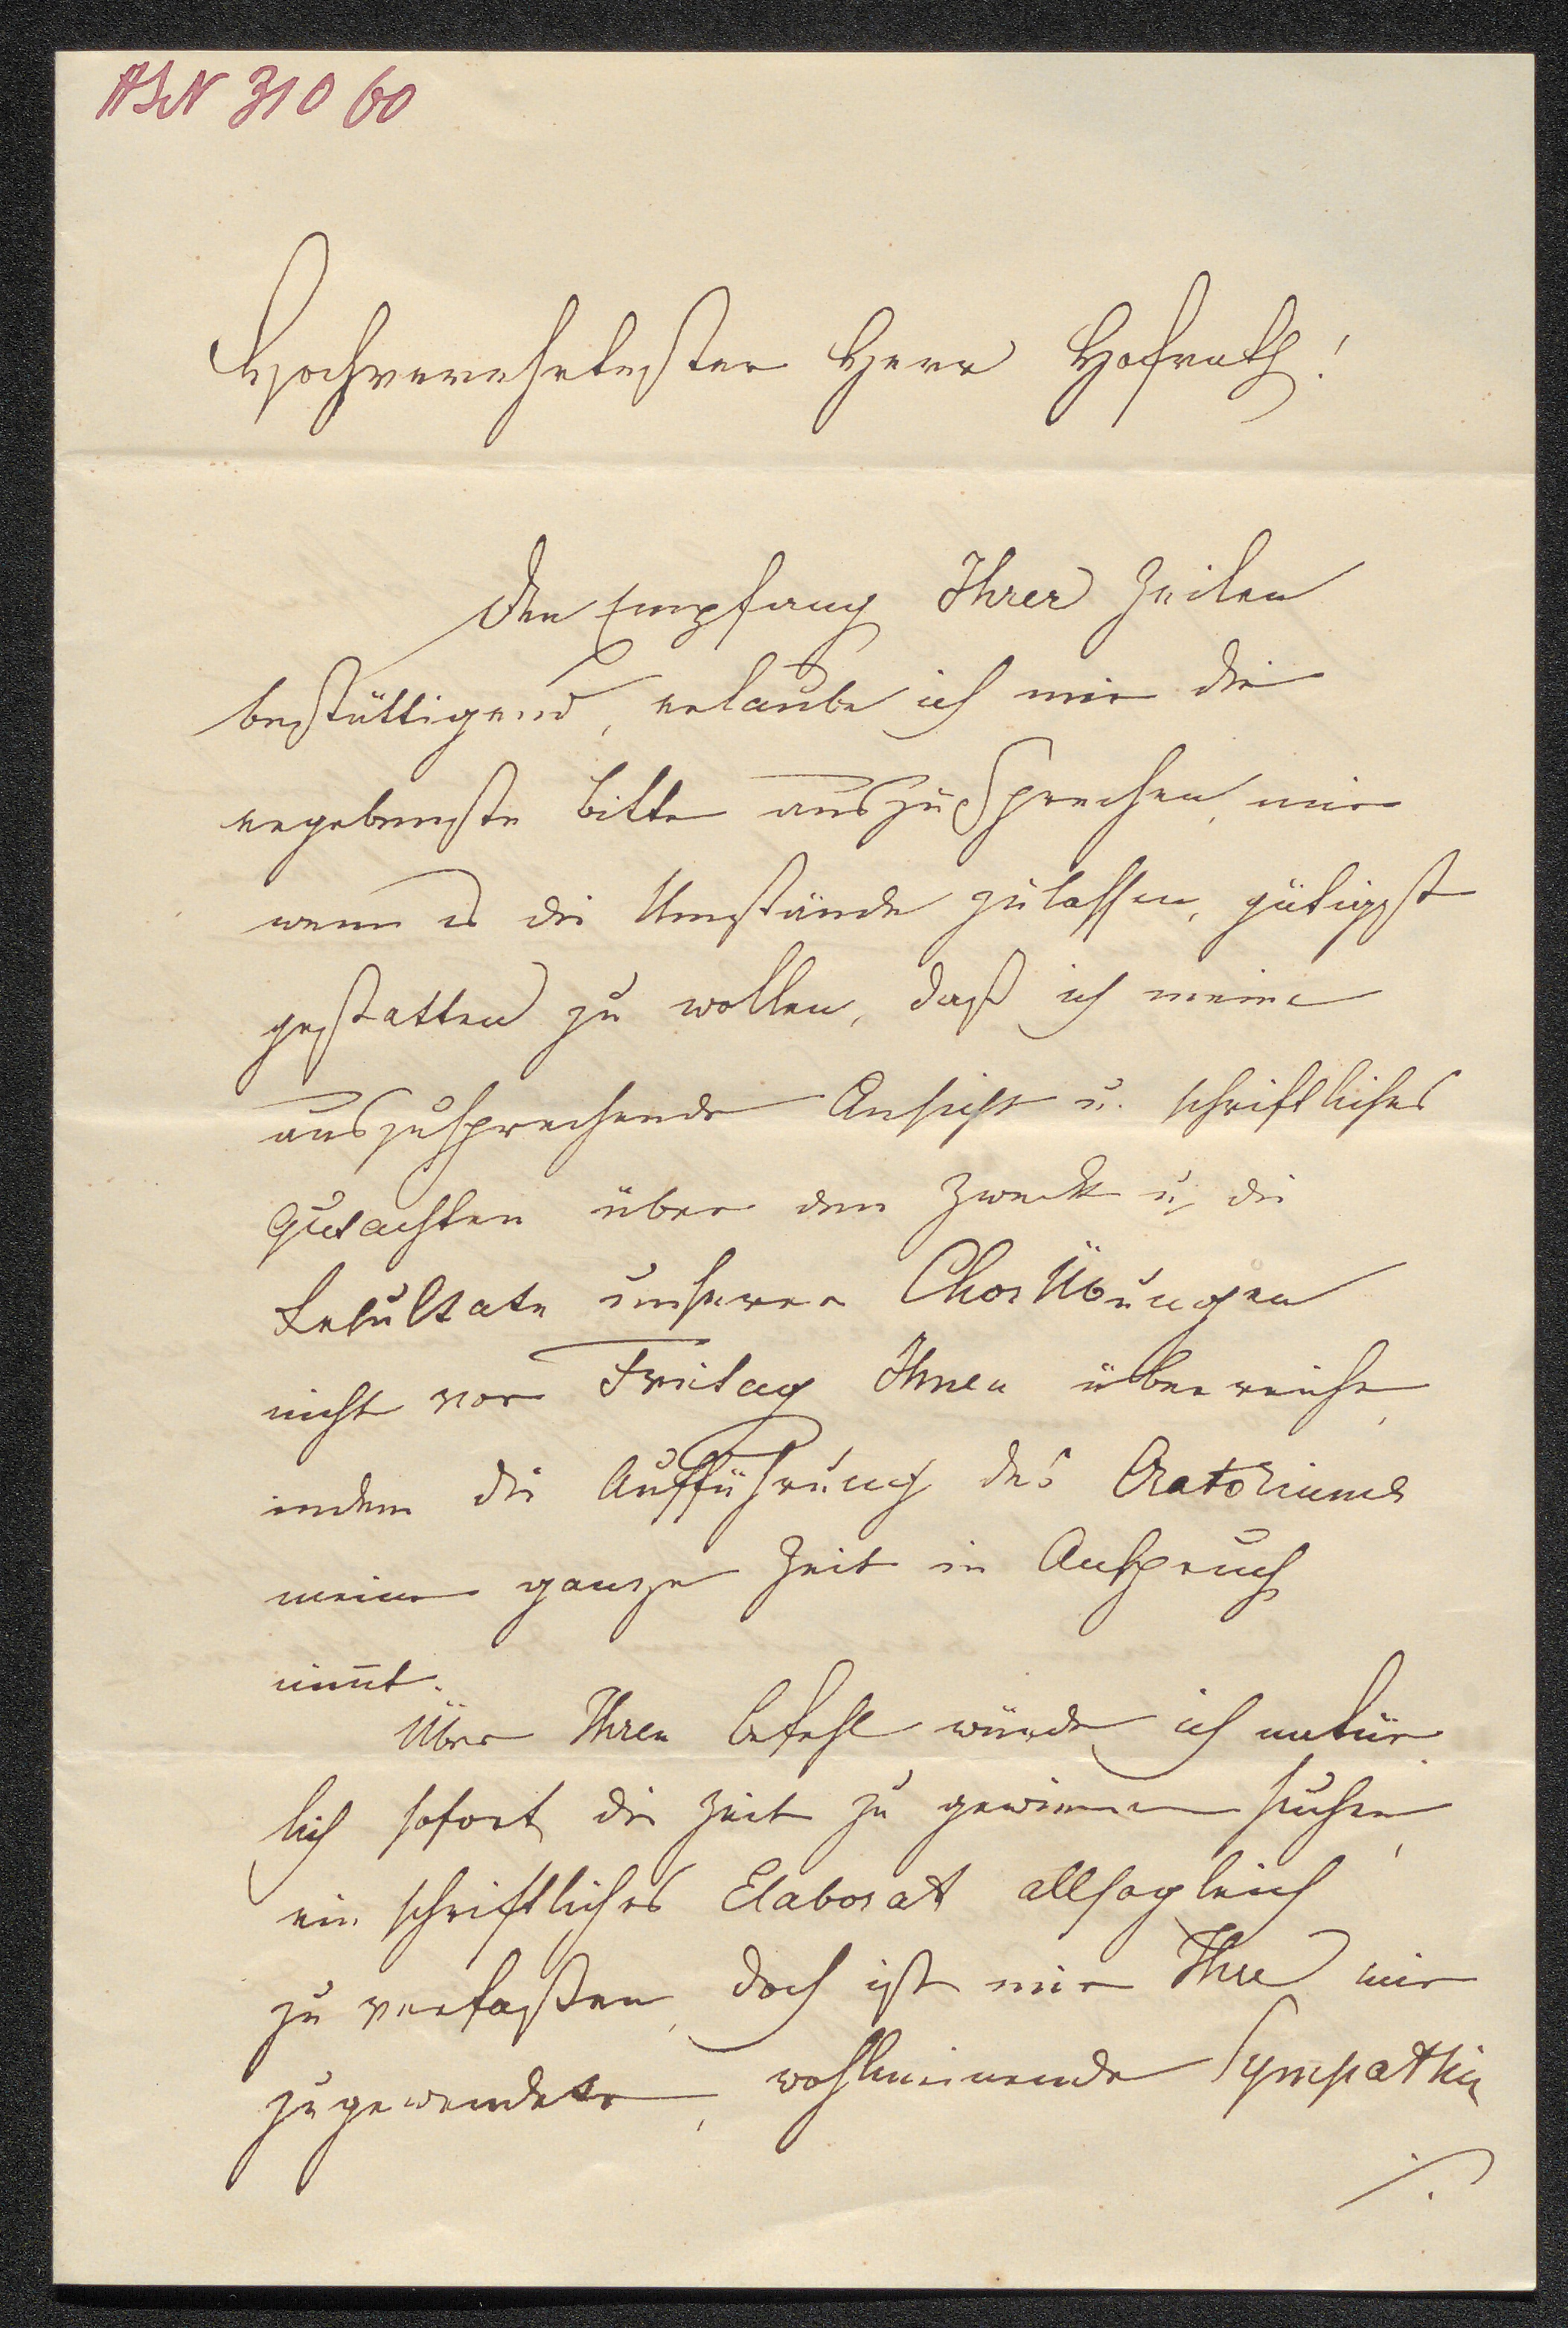 HIN 31060
Hochverehrtester Herr Hofrath!
Den Empfang Ihrer Zeilen
bestättigend, erlaube ich mir die
ergebenste Bitte auszusprechen, mir
wenn es die Umstände zulassen, gütigst
gestatten zu wollen, daß ich meine
auszusprechende Ansicht u. schriftliches
Gutachten über den Zweck u. die
Resultate unserer Chorübungen
nicht vor Freitag Ihnen überreiche,
indem die Aufführung des Oratoriums
meine ganze Zeit in Anspruch
nim̅t.
Über Ihren Befehl würde ich natür
lich sofort die Zeit zu gewinnen suchen,
ein schriftliches Elaborat allsogleich
zu verfaßen, doch ist mir Ihre mir
zugewendete, wohlmeinende Sympathie
./.